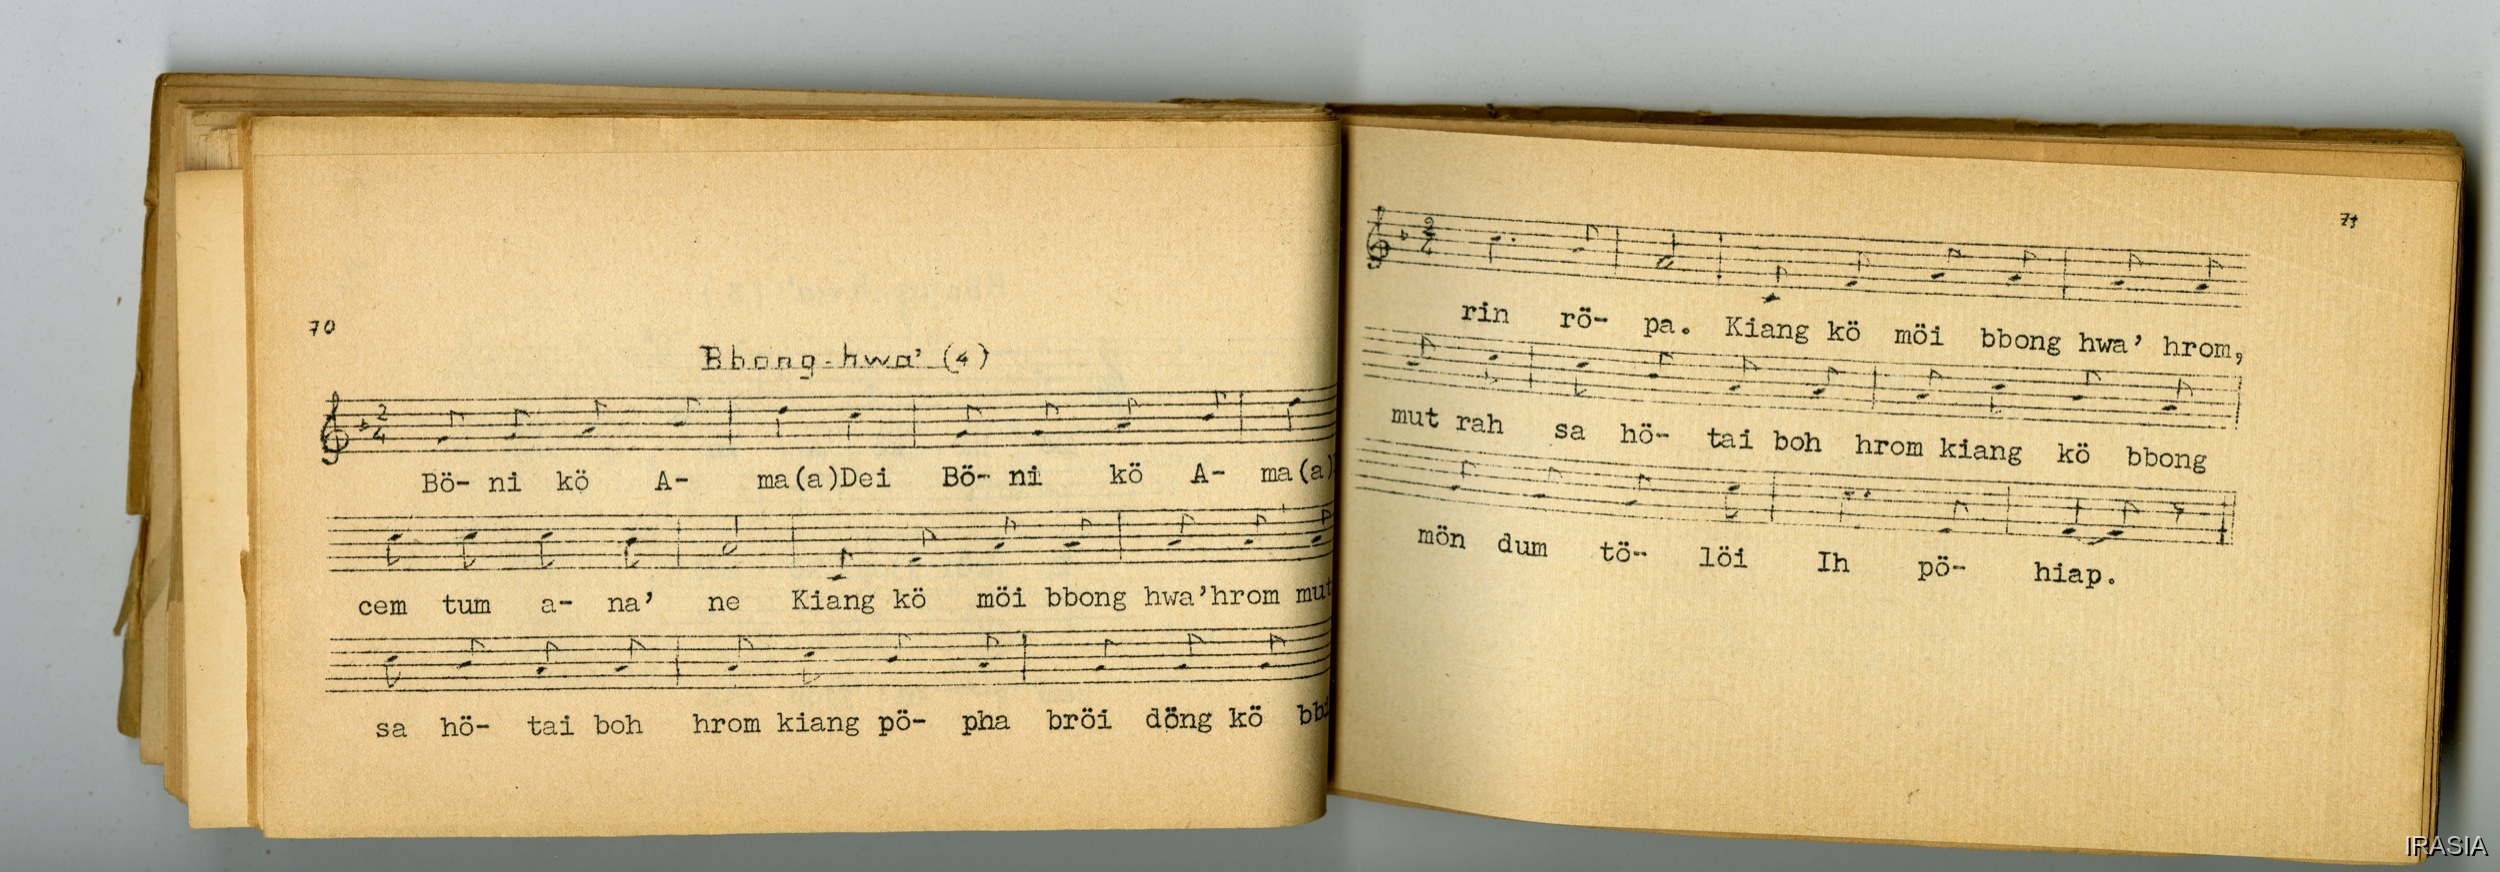 70
Bbong-hwa' (4)
2
4
Bö- ni kö A- ma(a)Dei Bö- ni kö A- ma(a)
cem tum a- na' ne Kiang kö möi bbong hwa'hrom mut
sa hö- tai boh hrom kiang pö- pha bröi döng kö
71
2
4
rin rö- pa. Kiang kö möi bbong hwa' hrom,
mut rah sa hö- tai boh hrom kiang kö bbong
mön dum tö- löi Ih pö- hiap.
IRASIA